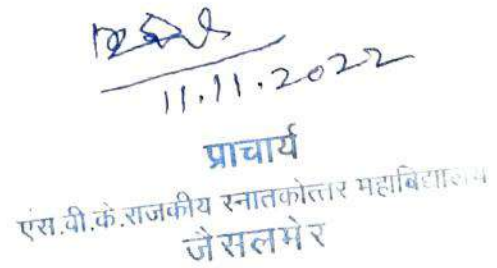 11.11.2022
प्राचार्य
एस.वी.के.राजकीय स्नातकोत्तर महाविद्यालय
जैसलमेर